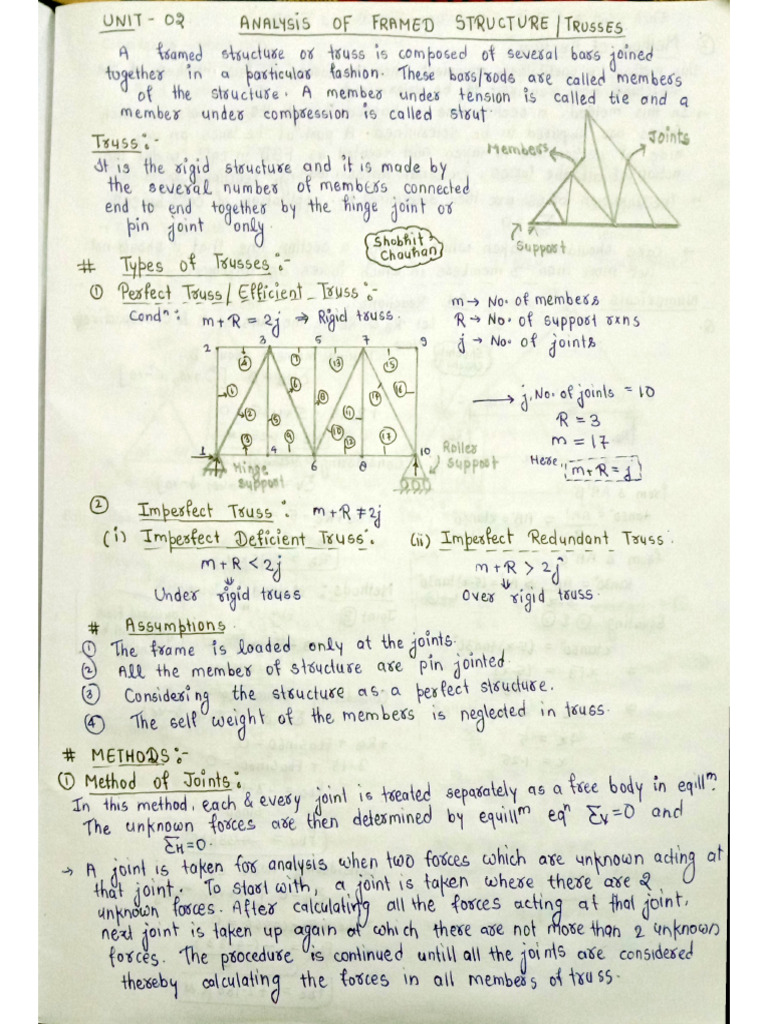 UNIT - 02 ANALYSIS OF FRAMED STRUCTURE / TRUSSES
A framed structure or truss is composed of several bars joined
together in a particular fashion. These bars/rods are called members
of the structure. A member under tension is called tie and a
member under compression is called strut.
Truss:-
It is the rigid structure and it is made by
the several number of members connected
end to end together by the hinge joint or
pin joint only.
Members
Joints
Support
Shobhit
Chauhan
# Types of Trusses:-
① Perfect Truss / Efficient Truss:-
Condⁿ: m + R = 2j ⇒ Rigid truss.
m → No. of members
R → No. of support rxns
j → No. of joints
2 3 5 7 9
④ ⑦ ⑬ ⑮
① ⑥ ⑧ ⑭ ⑯
② ⑤ ⑪
③ ⑨ ⑩ ⑫ ⑰
1 4 6 8 10
Hinge
support
Roller
support
→ j, No. of joints = 10
R = 3
m = 17
Here, m+R = j
② Imperfect Truss: m + R ≠ 2j
(i) Imperfect Deficient Truss:
m + R < 2j
⇓
Under rigid truss
(ii) Imperfect Redundant Truss:
m + R > 2j
⇓
Over rigid truss.
# Assumptions.
① The frame is loaded only at the joints.
② All the member of structure are pin jointed.
③ Considering the structure as a perfect structure.
④ The self weight of the members is neglected in truss.
# METHODS:-
① Method of Joints:
In this method, each & every joint is treated separately as a free body in eqillᵐ.
The unknown forces are then determined by equillᵐ eqⁿ Σv=0 and
ΣH=0.
→ A joint is taken for analysis when two forces which are unknown acting at
that joint. To start with, a joint is taken where there are 2
unknown forces. After calculating all the forces acting at that joint,
next joint is taken up again at which there are not more than 2 unknown
forces. The procedure is continued untill all the joints are considered
thereby calculating the forces in all members of truss.